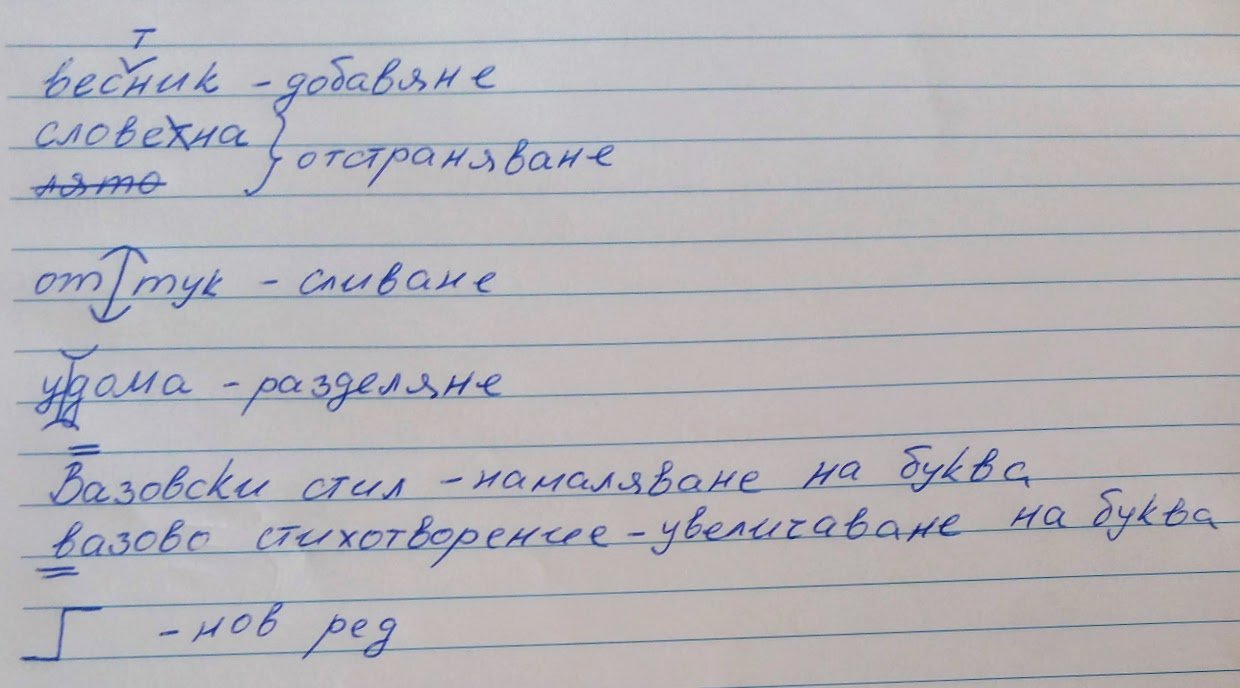 т
весник - добавяне
словехна
отстраняване
лято
от тук - сливане
удома - разделяне
Вазовски стил - намаляване на буква
вазово стихотворение - увеличаване на буква
- нов ред